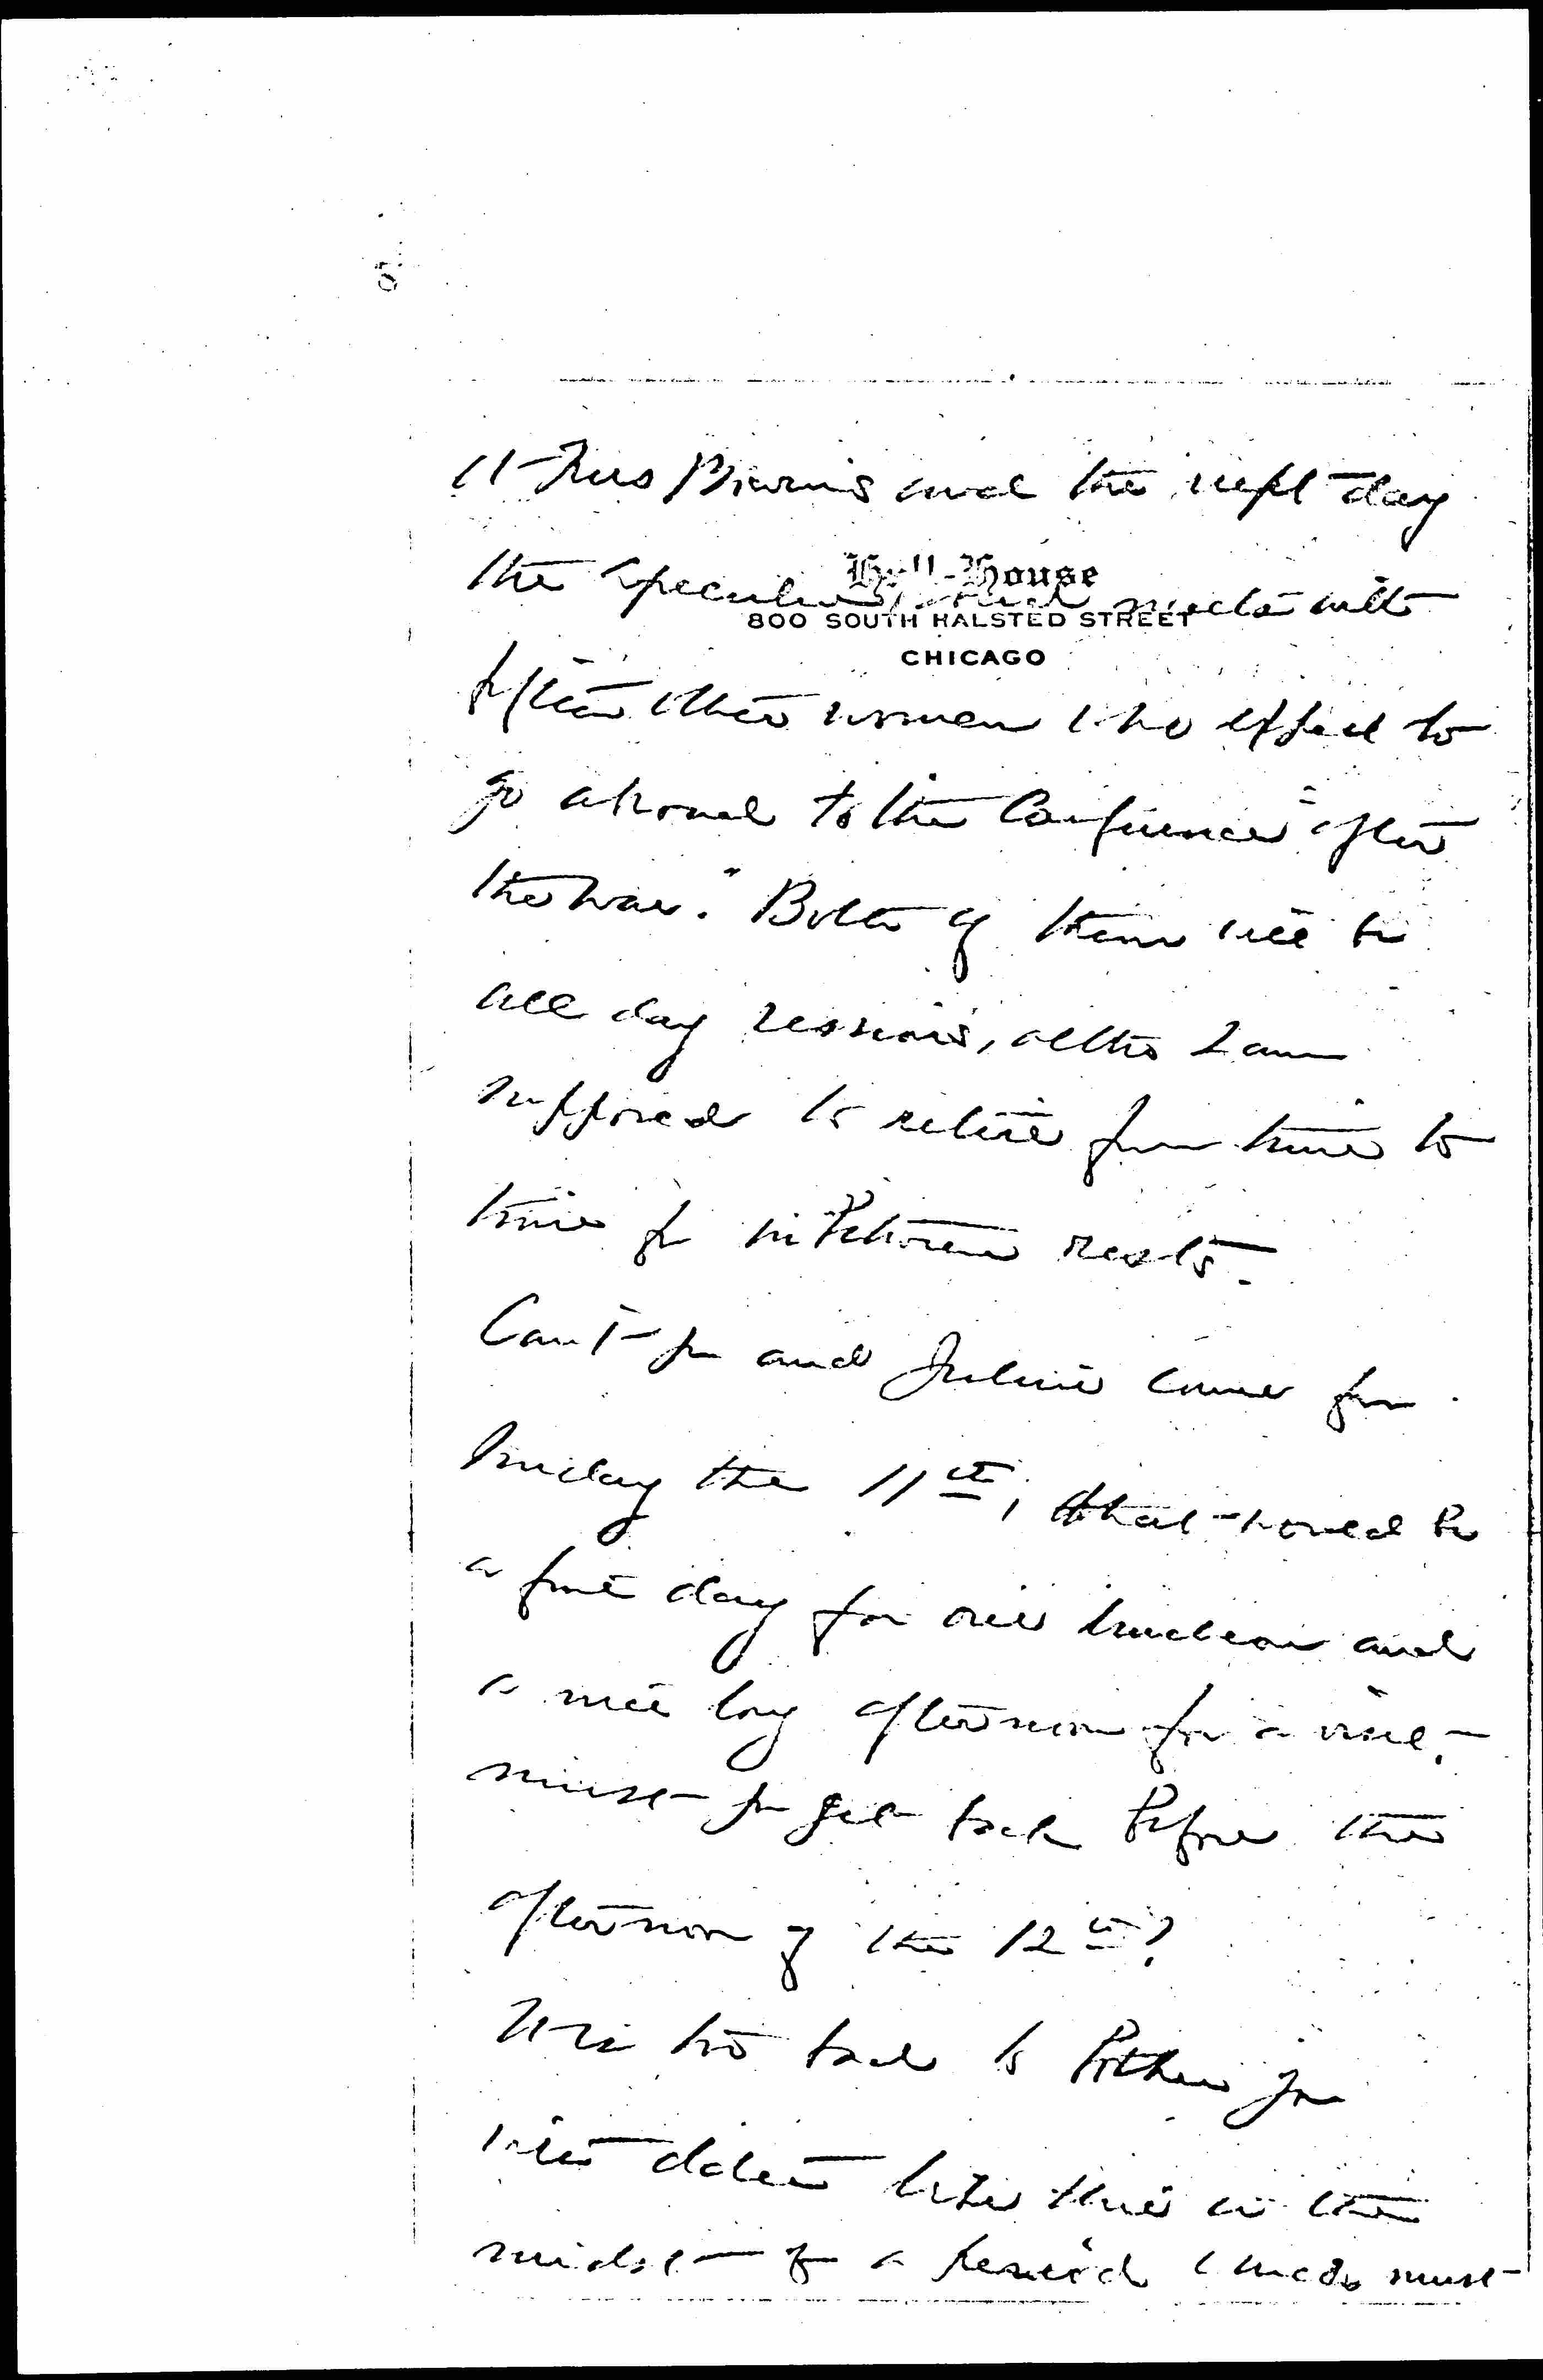 at this Morning and the next day
Hull-House
the Speculum meets with
800 SOUTH HALSTED STREET
CHICAGO
fifteen other women who expect to
go abroad to the Conference "after
the war." Both of them will be
all day sessions, altho I am
supposed to retire from time to
time for inbetween rests.
Can't you and Julius come for
Sunday the 11th, that would be
a fine day for our luncheon and
a nice long afternoon for a visit,
must you get back before the
afternoon of the 12th?
It is too bad to bother you
with dates like this in the
midst of a period which must